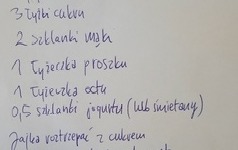 3 łyżki cukru
2 szklanki mąki
1 łyżeczka proszku
1 łyżeczka octu
0,5 szklanki jogurtu (lub śmietany)
Jajka roztrzepać z cukrem